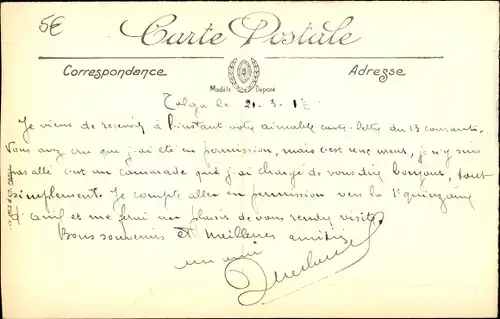 5€
Carte Postale
Correspondance
Adresse
Modèle Déposé
le 21-3-1
Je viens de recevoir à l'instant votre aimable carte-lettre du 13 courant.
Vous avez cru que j'ai été en permission, mais c'est une erreur, je n'y suis
pas allé c'est un camarade que j'ai chargé de vous dire bonjour, tout
simplement. Je compte aller en permission vers la 1e quinzaine
d'avril et me ferai un plaisir de vous rendre visite.
Bons souvenirs et meilleures amitiés
un ami